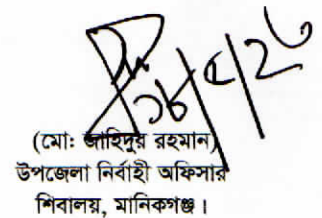 ১৮/৫/২৬
(মো: জাহিদুর রহমান)
উপজেলা নির্বাহী অফিসার
শিবালয়, মানিকগঞ্জ।